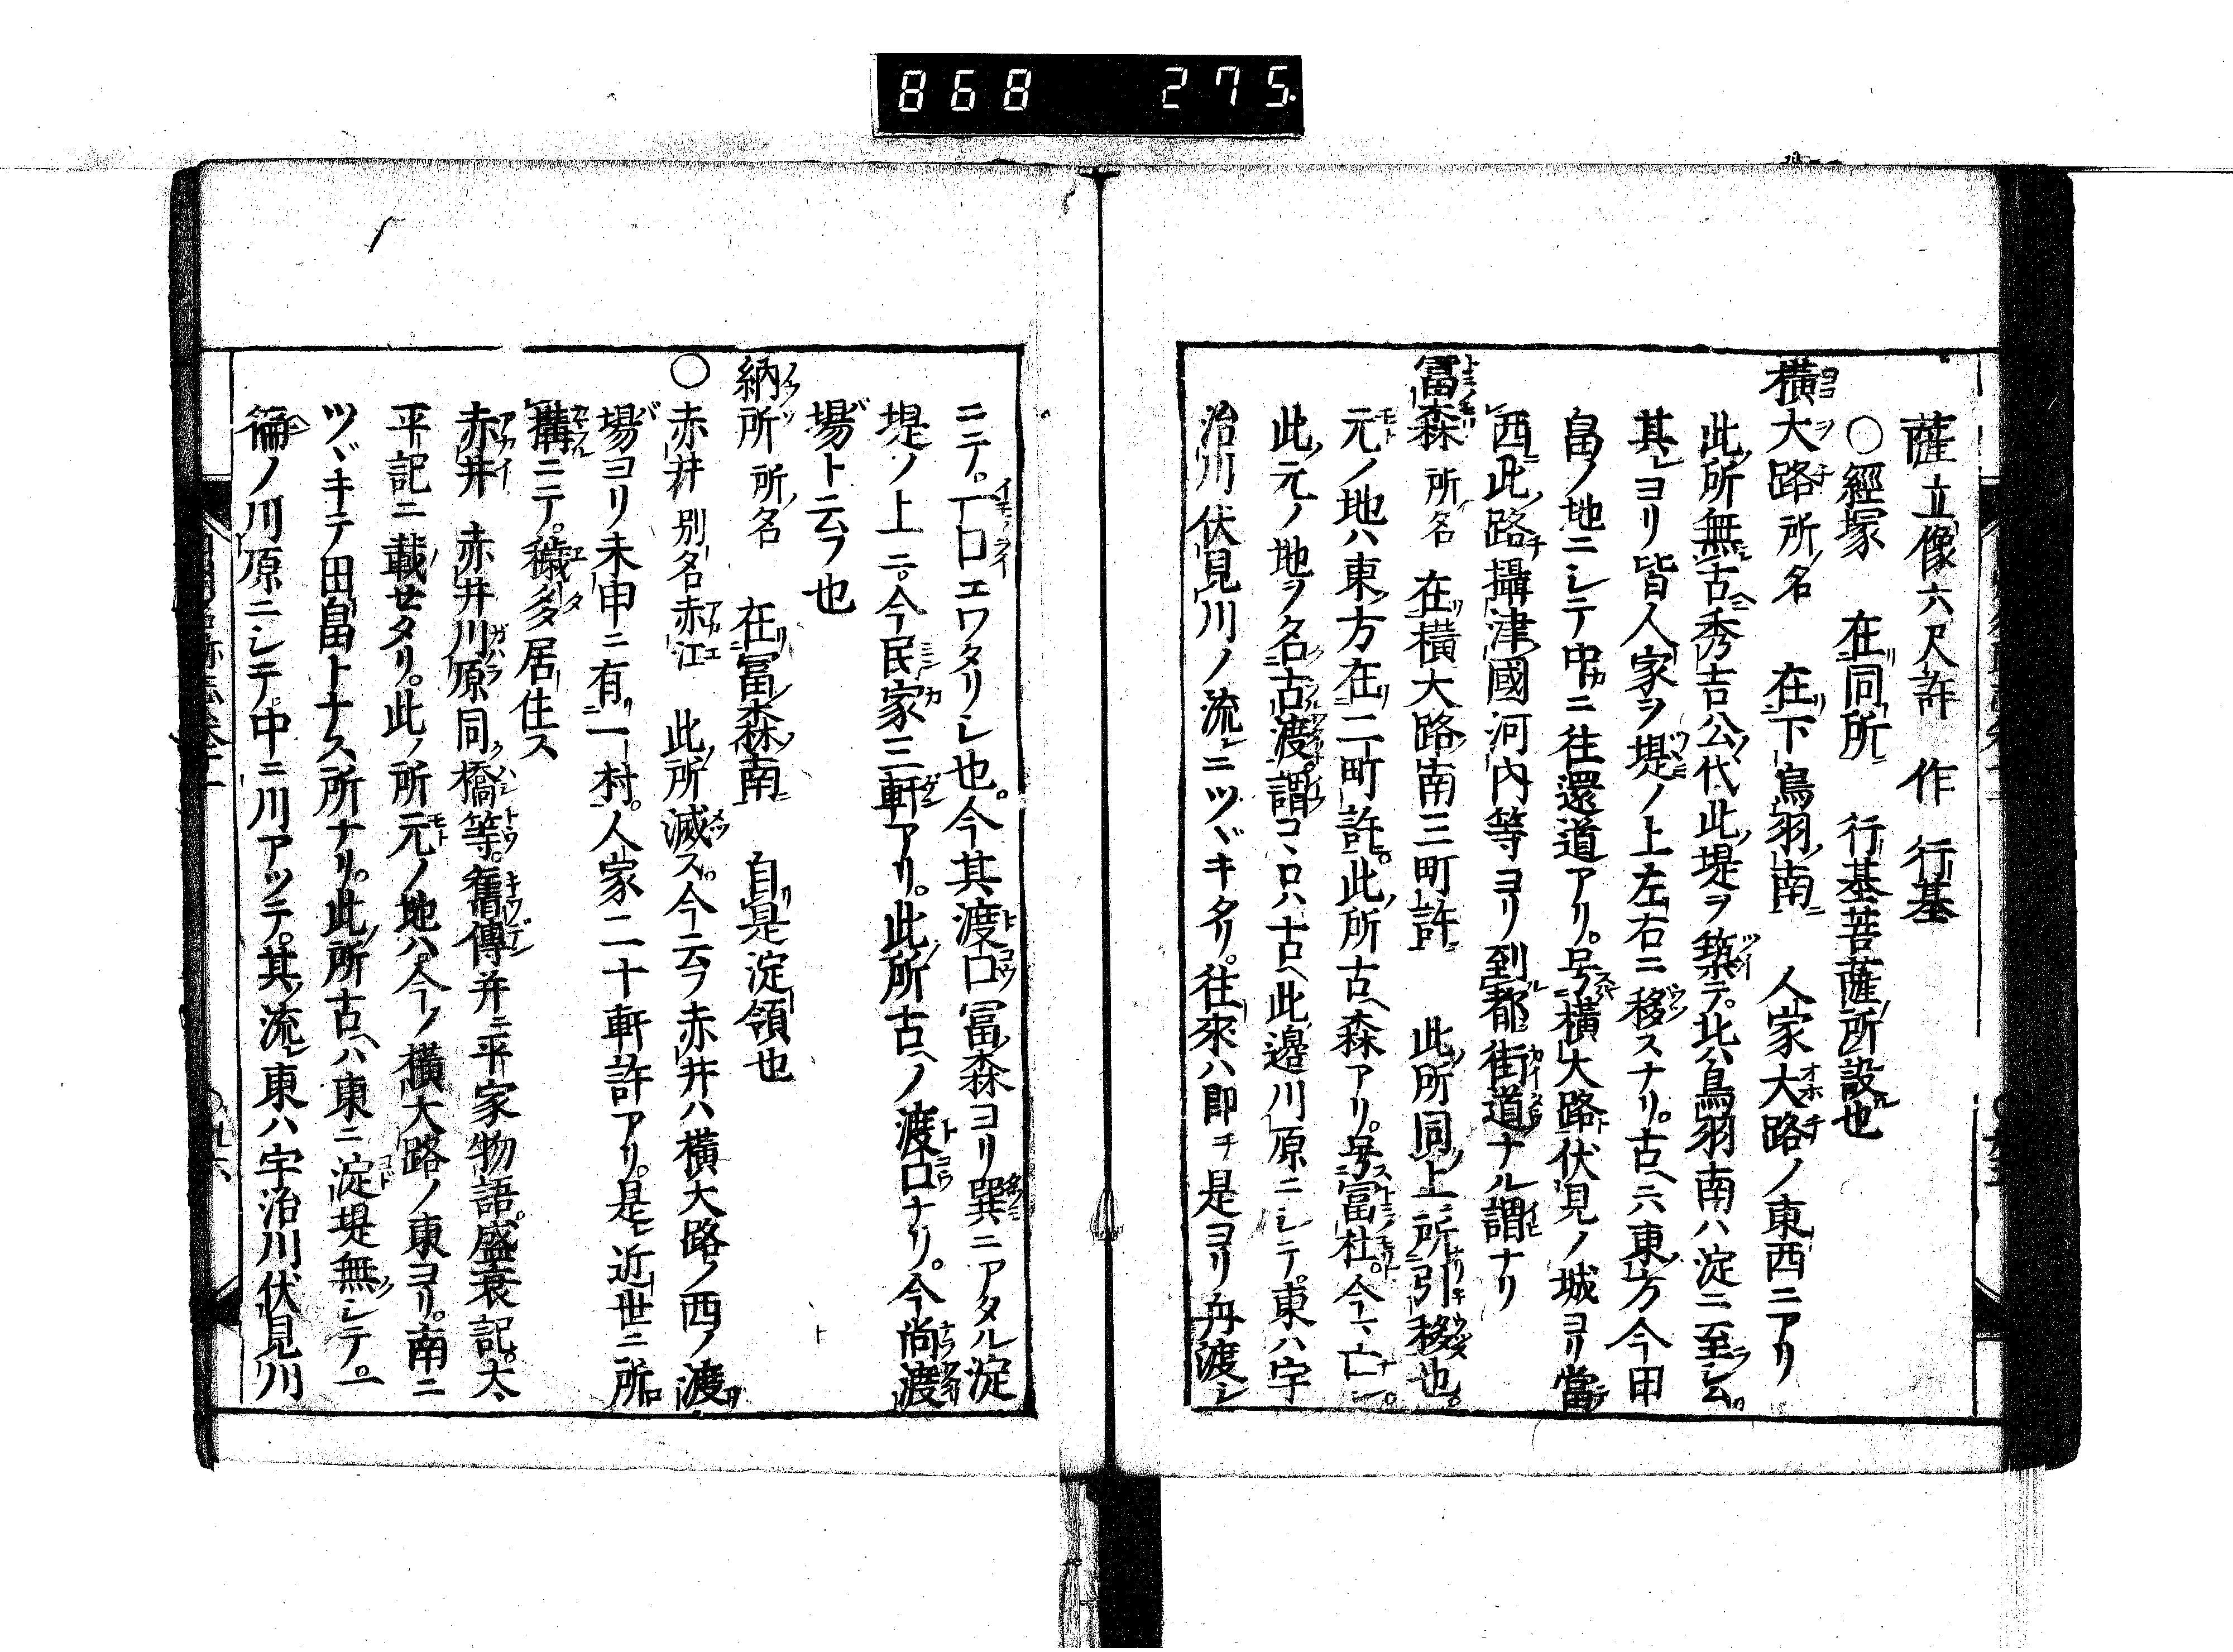 868 275.
薩立像六尺許 作 行基
○經塚 在同所 行基菩薩所設也
横大路 所ノ名 在下鳥羽ノ南 人家大路ノ東西ニアリ
此ノ所無古秀吉公ノ代此ノ堤ヲ築テ。北ハ鳥羽南ハ淀ニ至ラシム。
其レヨリ皆人家ヲ堤ノ上左右ニ移スナリ。古ヘニハ東ノ方今田
畠ノ地ニシテ中ニ往還道アリ。号横大路ト伏見ノ城ヨリ當
西此ノ路攝津國河内等ヨリ到ル都ニ街道ナル謂ナリ
冨森 所ノ名 在横大路南三町許 此ノ所同上ノ所ニ引移也。
元ノ地ハ東ノ方在二町許。此ノ所古ヘ森アリ。号冨杜。今ハ亡シ。
此ノ元ノ地ヲ名古渡。謂コヽロハ古ヘ此ノ邊川原ニシテ。東ハ宇
治川伏見川ノ流レニツヾキタリ。往來ハ即チ是ヨリ舟渡シ
ニテ。一口エワタリシ也。今其ノ渡口冨森ヨリ巽ニアタル淀
堤ノ上ニ。今民家三軒アリ。此ノ所古ヘノ渡口ナリ。今尚渡
場ト云フ也
納所 所ノ名 在冨森ノ南 自是淀領也
○赤井 別名赤江 此ノ所滅ス。今云フ赤井ハ横大路ノ西ノ渡
場ヨリ未申ニ有一村。人家二十軒許アリ。是ニ近世ニ所
構ニテ。穢多居住ス
赤井 赤井川原同橋等。舊傳并ニ平家物語。盛衰記。太
平記ニ載セタリ。此ノ所元ノ地ハ。今ノ横大路ノ東ヨリ。南ニ
ツヾキテ田畠トナス所ナリ。此ノ所古ヘハ東ニ淀堤無シテ。一
徧ノ川原ニシテ。中ニ川アッテ。其ノ流レ東ハ宇治川伏見川